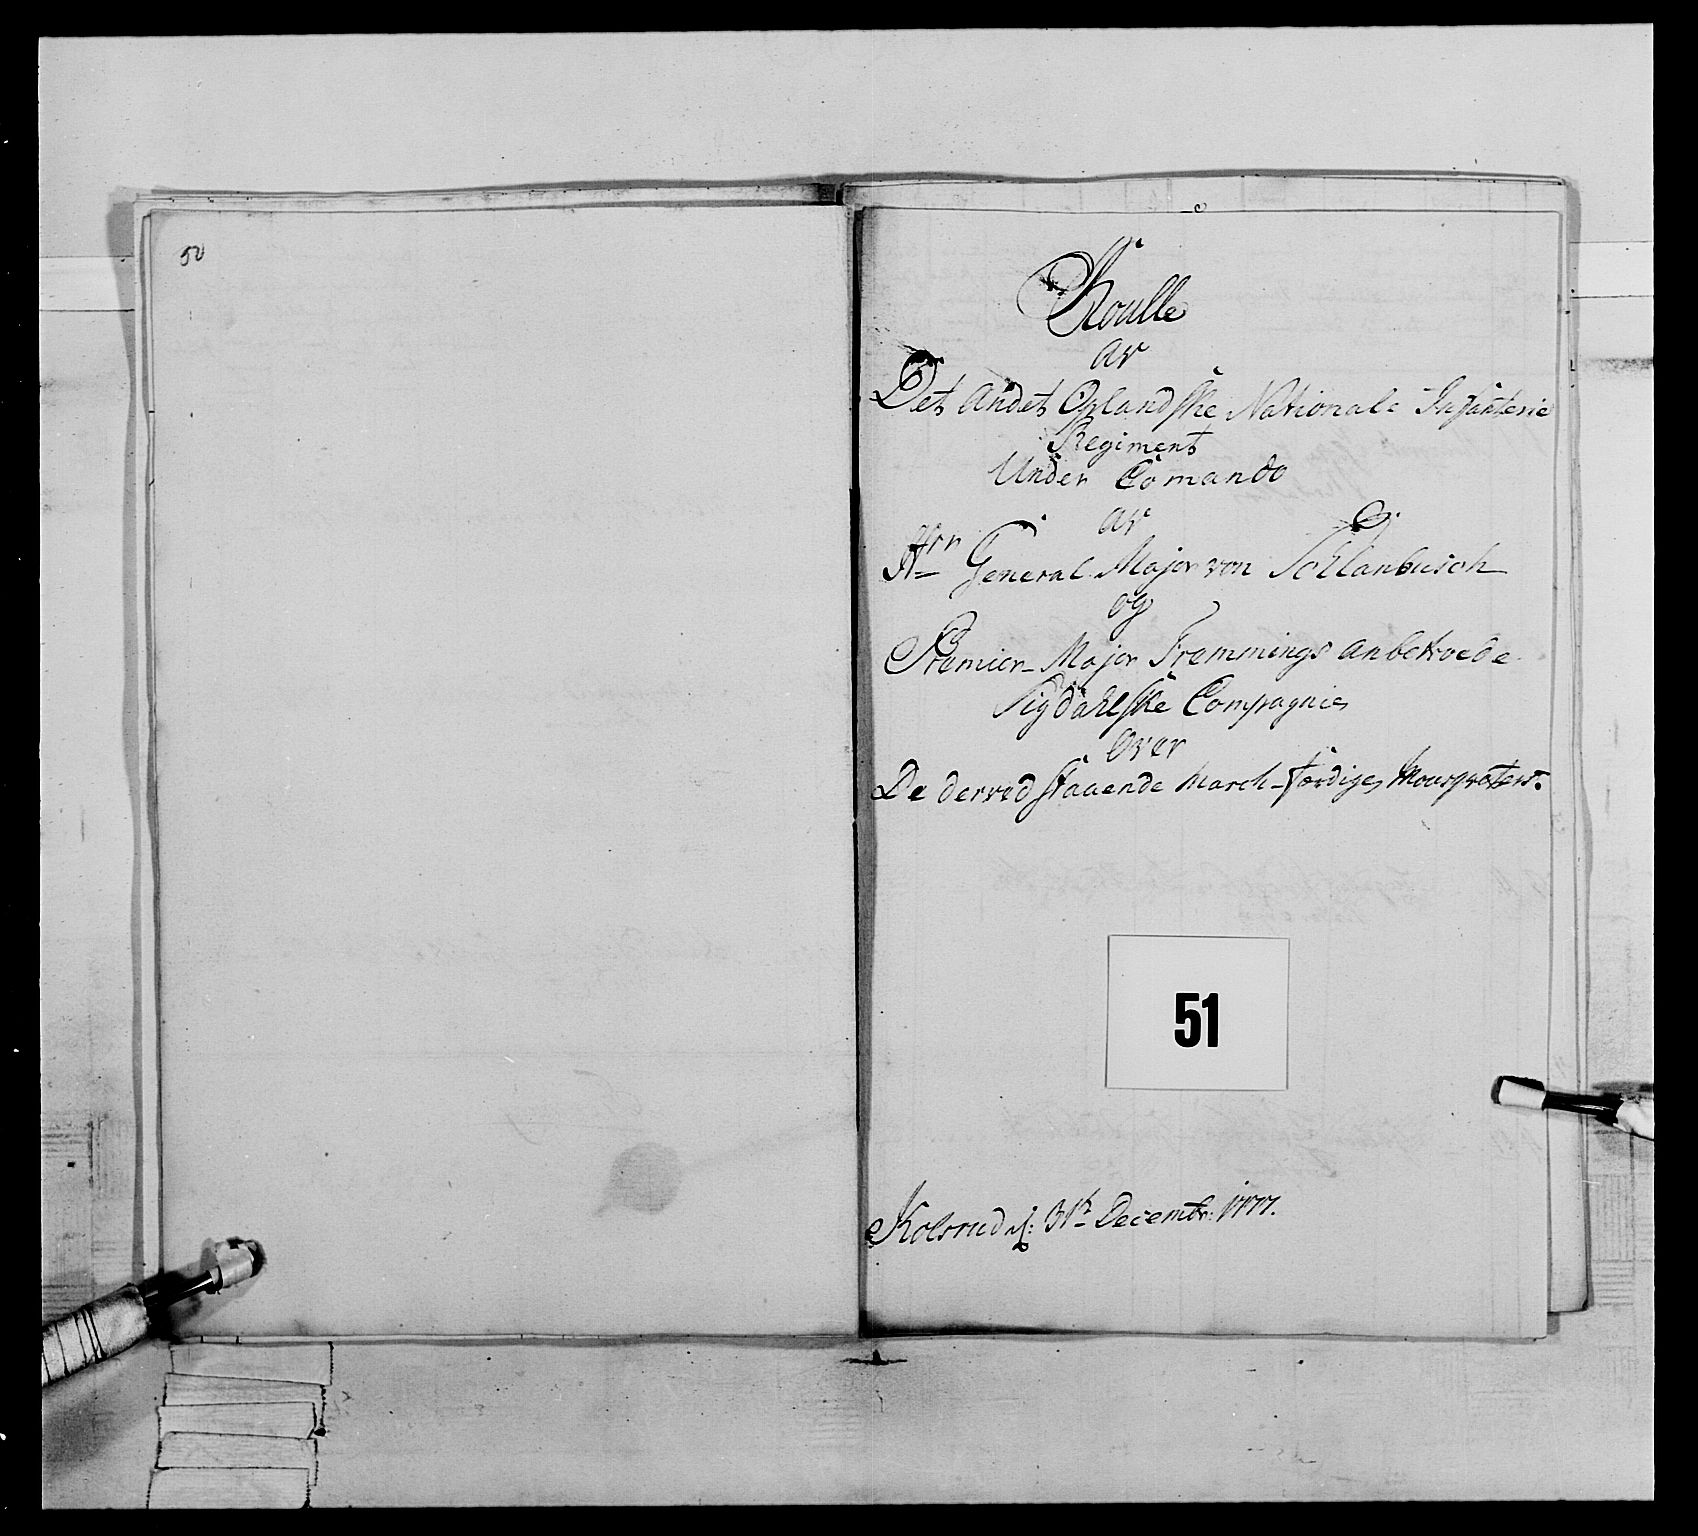 50
Roulle
av
Det Andet Oplandske National: Infanterie
Regiment
Under Comando
av
Hrr General Major von Schlanbusch
og
Premier-Major Fremmings anbetroede
Sigdahlske Compagnie
Over
De derved staaende March-færdige Mousqveters.
51
Kolsrud d: 31te Decembr: 1777.